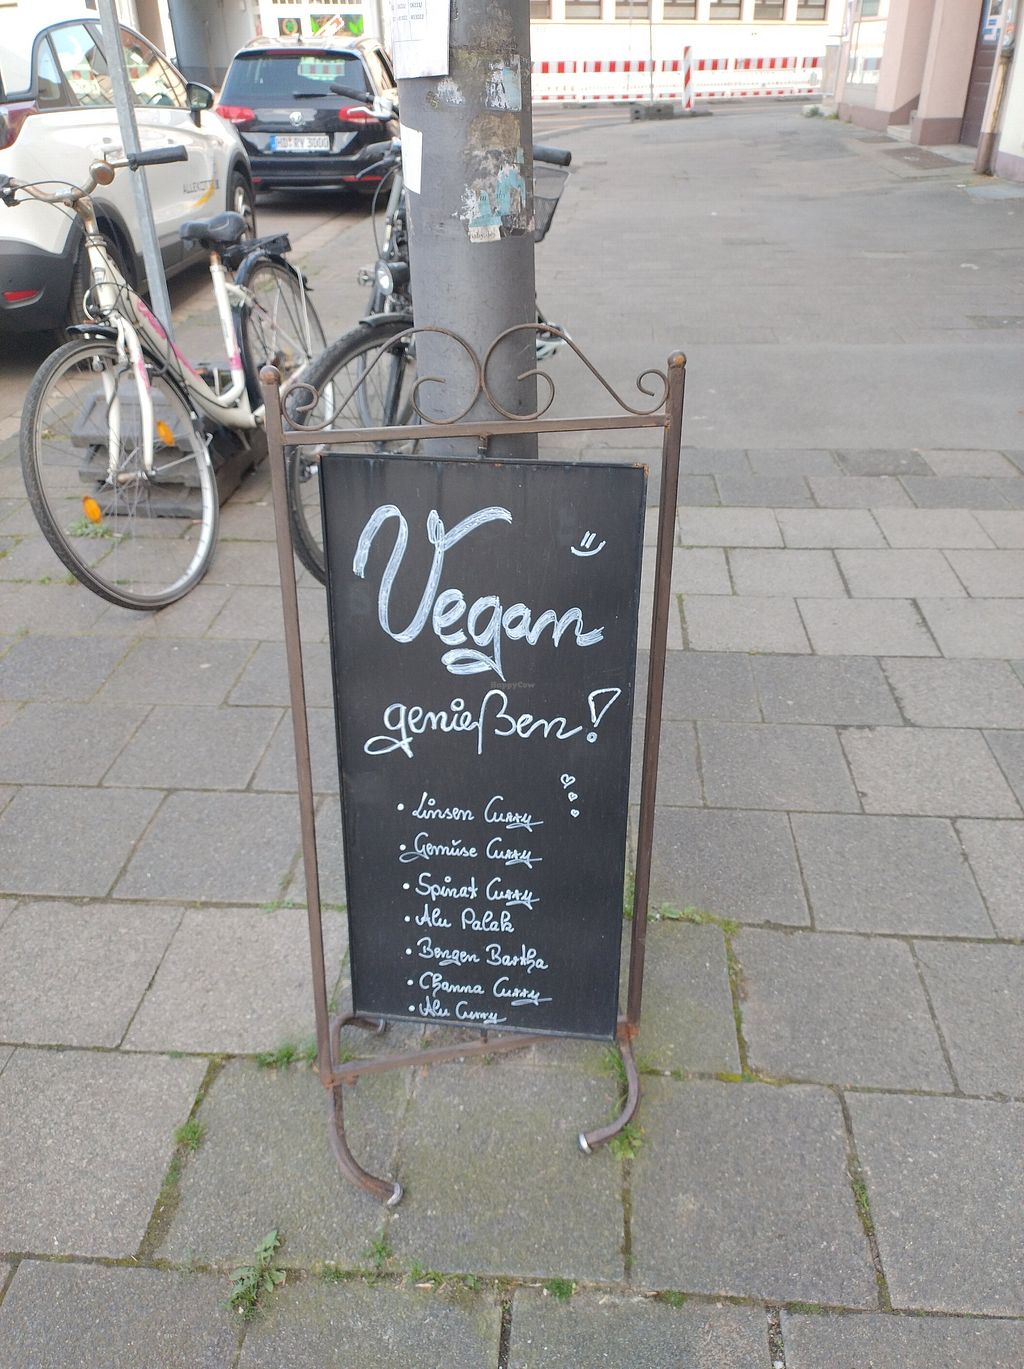 HD RY 3000
Vegan
genießen!
HappyCow
• Linsen Curry
• Gemüse Curry
• Spinat Curry
• Alu Palak
• Bengen Bartha
• Channa Curry
• Alu Curry